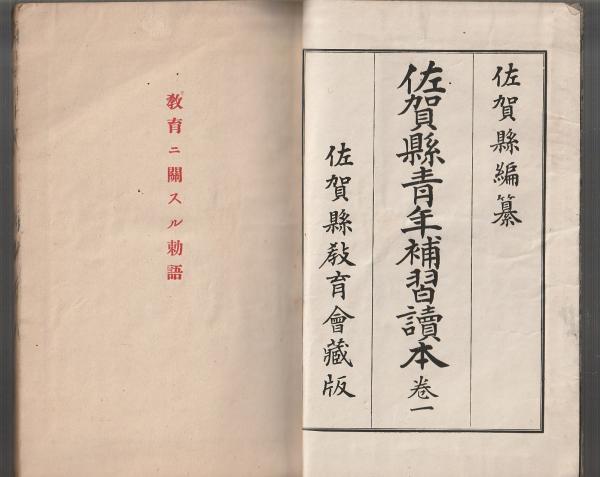 佐賀縣編纂
佐賀縣青年補習讀本 卷一
佐賀縣敎育會藏版
敎育ニ關スル勅語